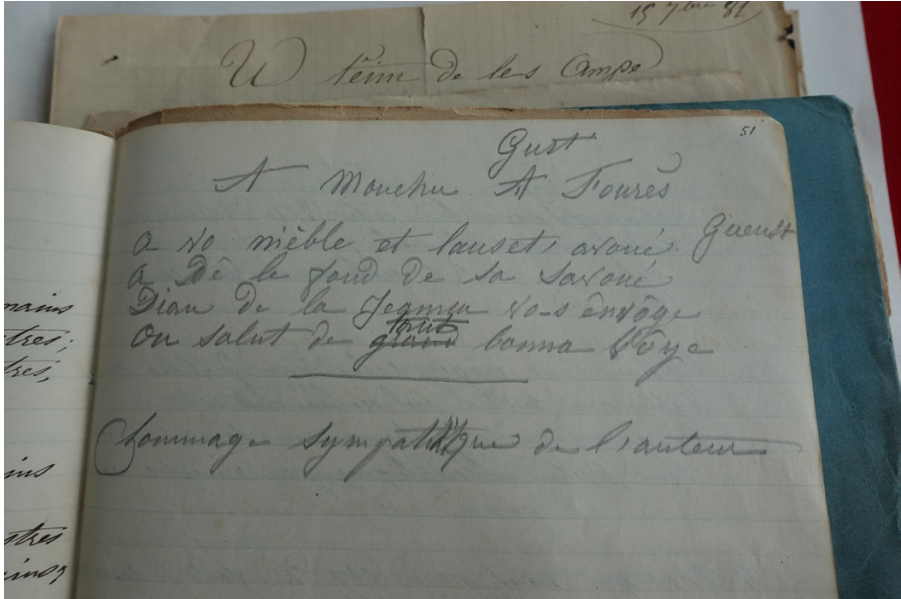 15 7bre 81
U têim de les Ampo
51
Gust
A Mouchu A Fourès
a vo nièble et lauset, avoué Gueust
a Dè le fond de sa Savoué
Dian de la Jeanna vo-s envôge
On salut de grand tout bonna vôye
hommage sympathique de l'auteur
mains
tres;
tres,
ins
stres